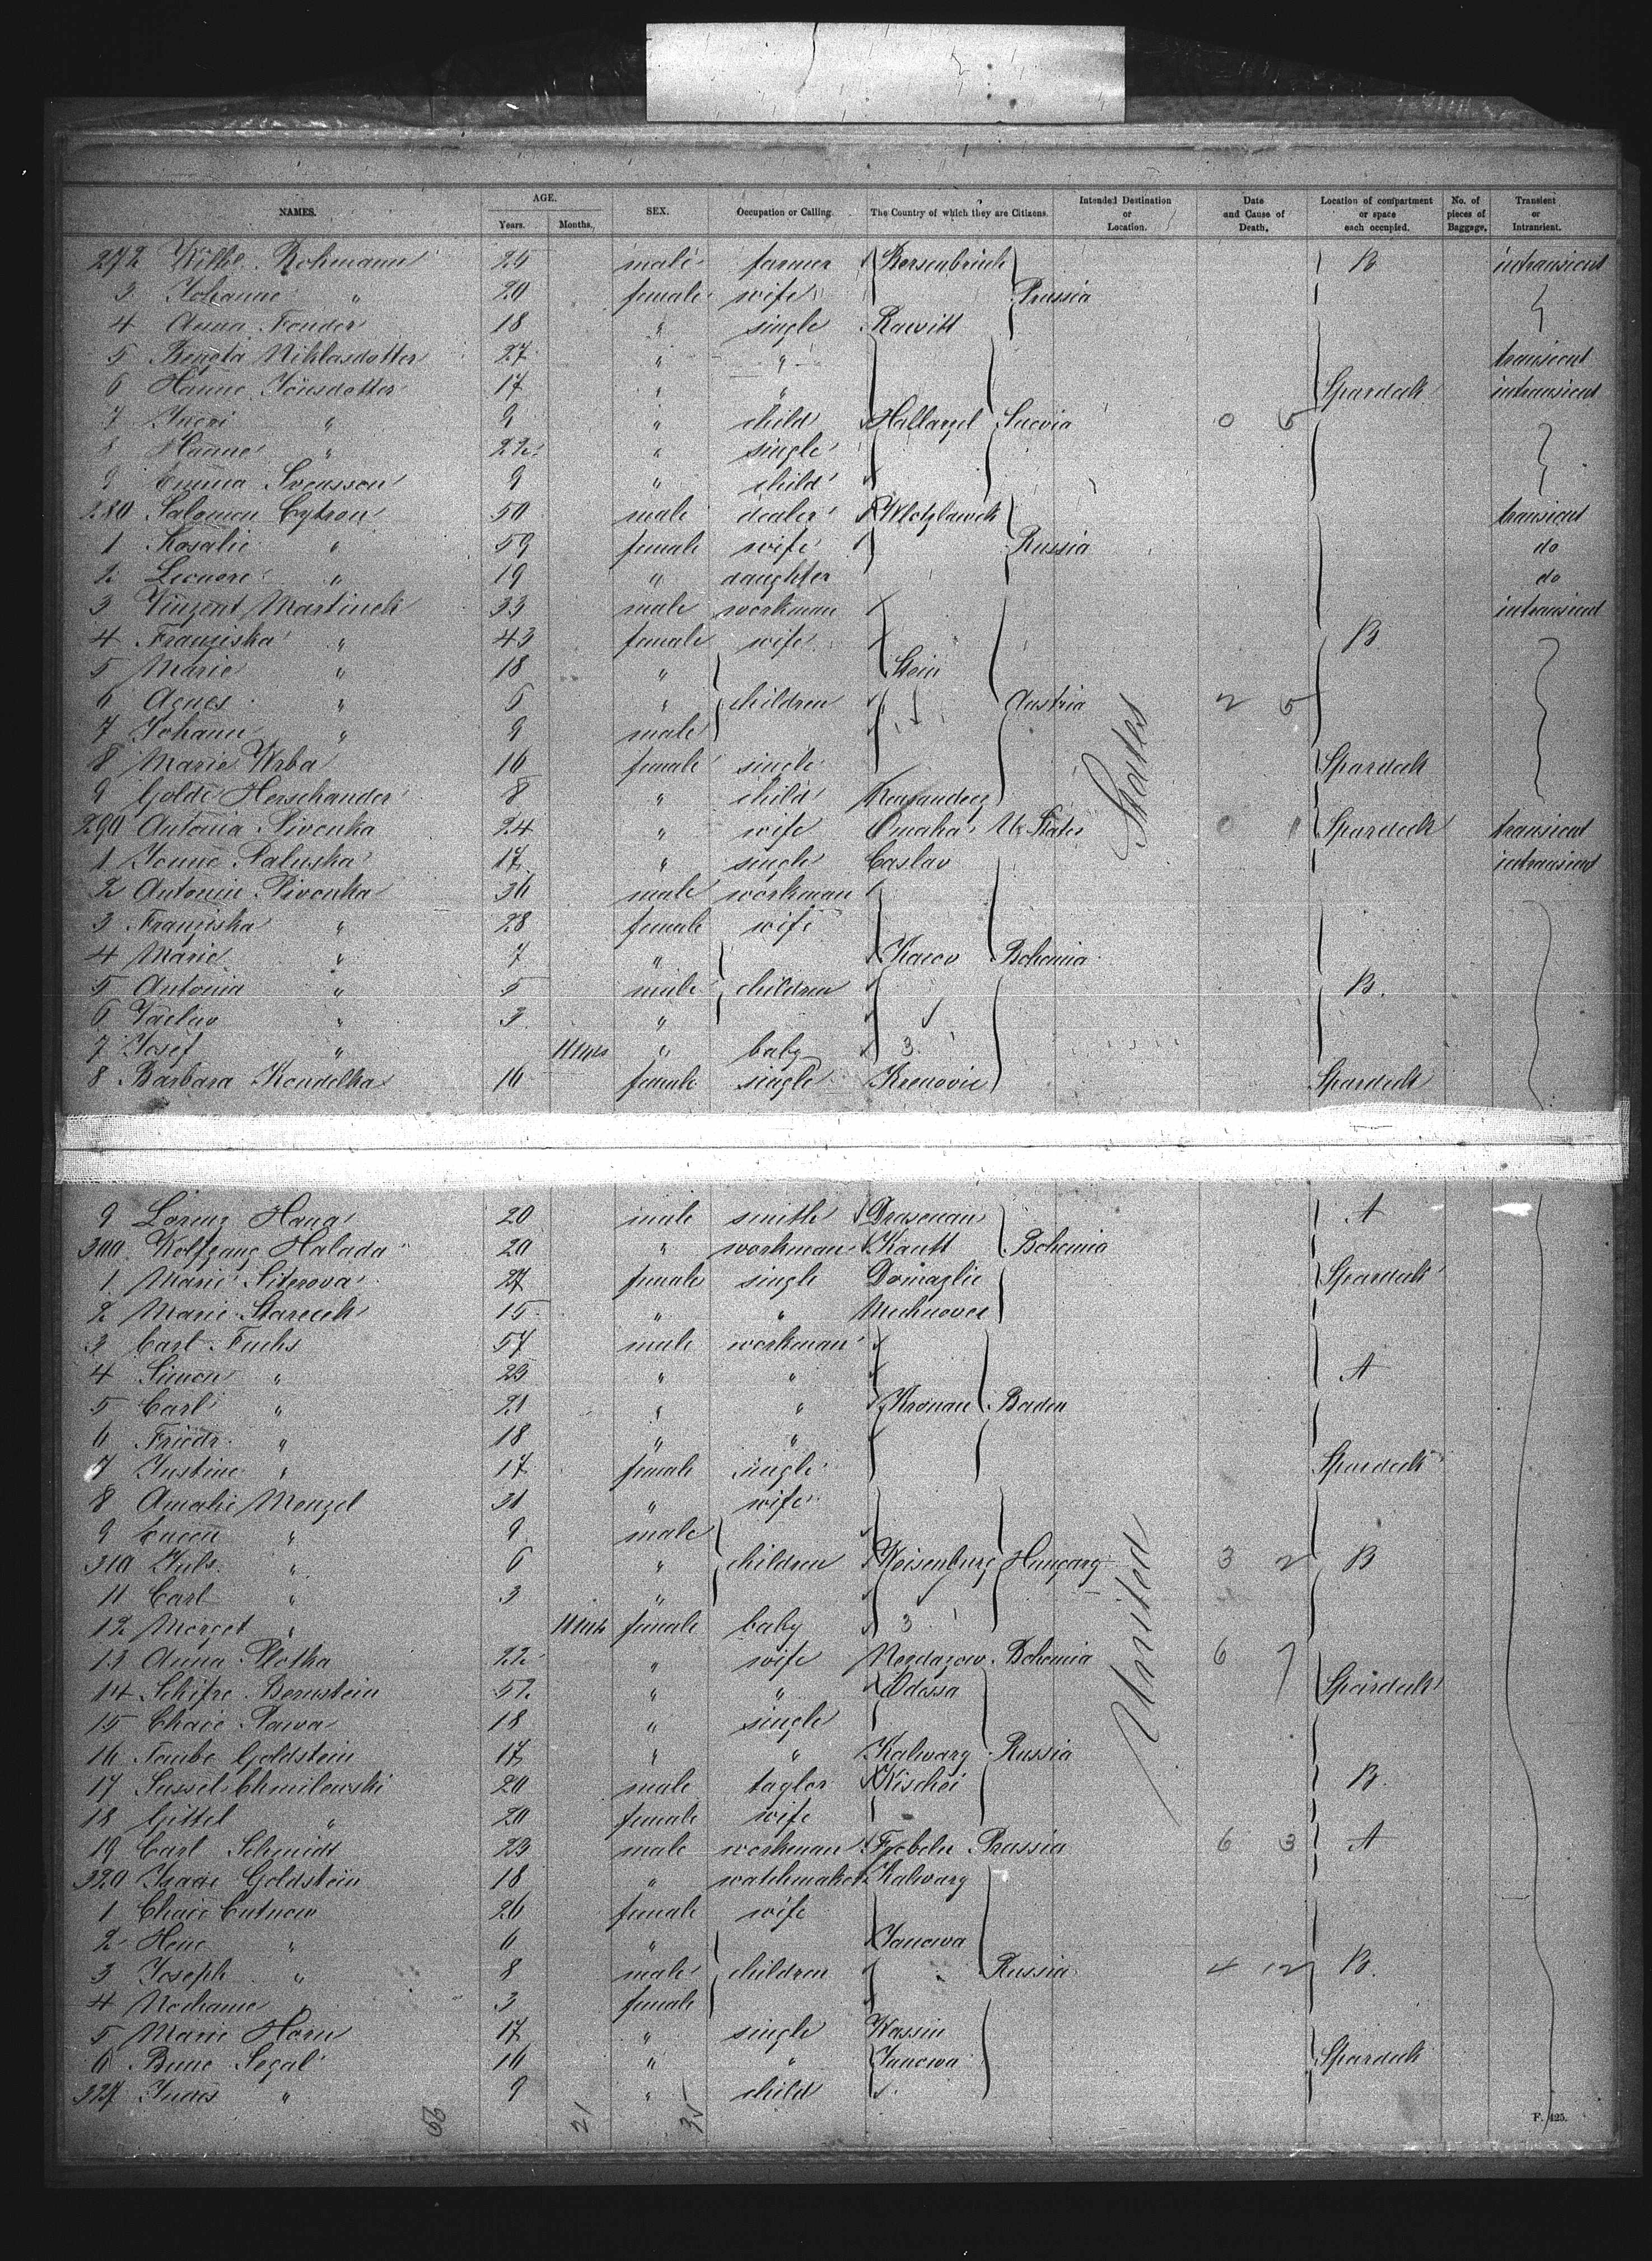 NAMES. AGE. Years. Months. SEX. Occupation or Calling. The Country of which they are Citizens. Intended Destination or Location. Date and Cause of Death. Location of compartment or space each occupied. No. of pieces of Baggage. Transient or Intransient.
272 Rohmann 26 male farmer Bersenbrück B intransient
3 Johanne " 20 female wife Prussia
4 Anna 18 " single Rawitt
5 Bengta Niklasdotter 27 " " transient
6 Hanne Jönsdotter 17 " " Spardeck intransient
7 " 9 " child Suevia 0 5
8 Hanne " 22 " single
9 Emma Svensson 9 " child
280 Salomon Cytron 50 male dealer transient
1 Rosalie " 59 female wife Russia do
2 Leonore " 19 " daughter do
3 Vinzent Martinek 33 male workman intransient
4 Franziska " 43 female wife B
5 Marie " 18 " Stein
6 Agnes " 5 " children Austria 2 5
7 Johann " 9 male
8 Marie Wrba 16 female single Spardeck
9 Golde 8 " child
290 Antonia Pivonka 24 " wife Omaha U. States 0 1 Spardeck transient
1 17 " single Caslav intransient
2 Antonin Pivonka 36 male workman
3 Franziska " 28 female wife
4 Marie " 7 " Bohemia
5 Antonin " 5 male children B.
6 Vaclav " 3 "
7 Josef " 11 mts " baby 3
8 Barbara Koudelka 16 female single Krenovic Spardeck
9 Lorenz 20 male smith A
300 Wolfgang Halada 20 " workman Kautt Bohemia
1 Marie 27 female single Domazlic Spardeck
2 Marie 15 " "
3 Carl Fuchs 57 male workman
4 Simon " 23 " " A
5 Carl " 21 " " Kronau Baden
6 Friedr. " 18 " "
7 Justine " 17 female single Spardeck
8 Amalie Menzel 31 " wife
9 Eugen " 9 male
310 Juls. " 6 " children Hungary 3 2 B
11 Carl " 3 "
12 Marget " 11 mts female baby 3
13 Anna Plotka 22 " wife Bohemia 6 7
14 Schifre Bernstein 52 " " Odessa Spardeck
15 Chaie 18 " single
16 Taube Goldstein 17 " " Kalwary Russia
17 Sussel Chmilewski 20 male taylor B.
18 Gittel " 20 female wife
19 Carl Schmidt 23 male workman Prussia 6 3 A
320 Isaac Goldstein 18 " watchmaker Kalwary
1 Chaie 26 female wife
2 Hene " 6 " Janowa
3 Joseph " 8 male children Russia 4 12 B.
4 3 female
5 Marie Horn 17 " single
6 Bune Segal 16 " " Janowa Spardeck
327 " 9 " child
United States
56 21 35
F. 425.